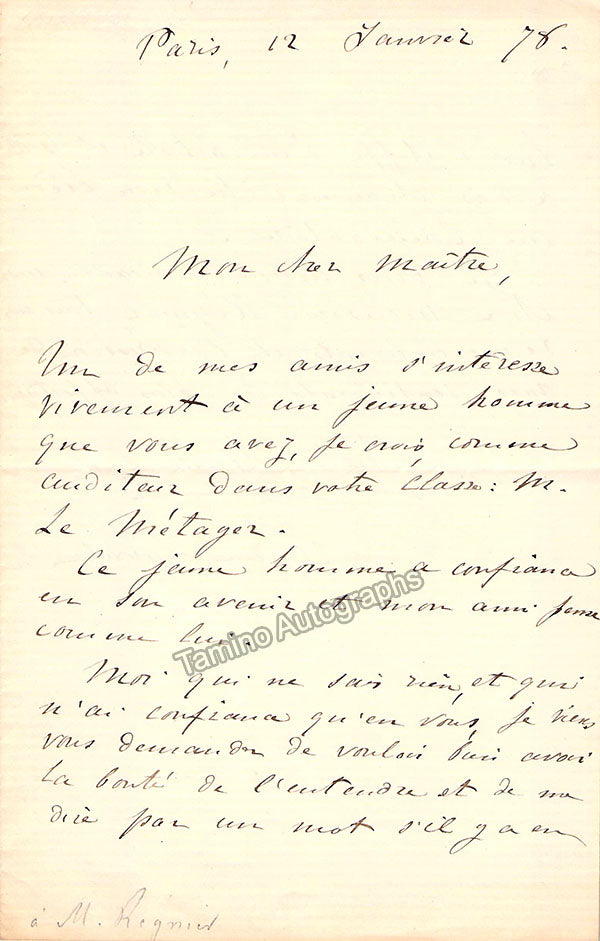 Paris, 12 Janvier 78.
Mon cher Maître,
Un de mes amis s'intéresse
vivement à un jeune homme
que vous avez, je crois, comme
auditeur dans votre classe: M.
Le Métayer.
Ce jeune homme a confiance
en son avenir et mon ami pense
comme lui.
Tamino Autographs
Moi qui ne sais rien, et qui
n'ai confiance qu'en vous, je viens
vous demander de vouloir bien avoir
la bonté de l'entendre et de me
dire par un mot s'il y a en
à M. Regnier